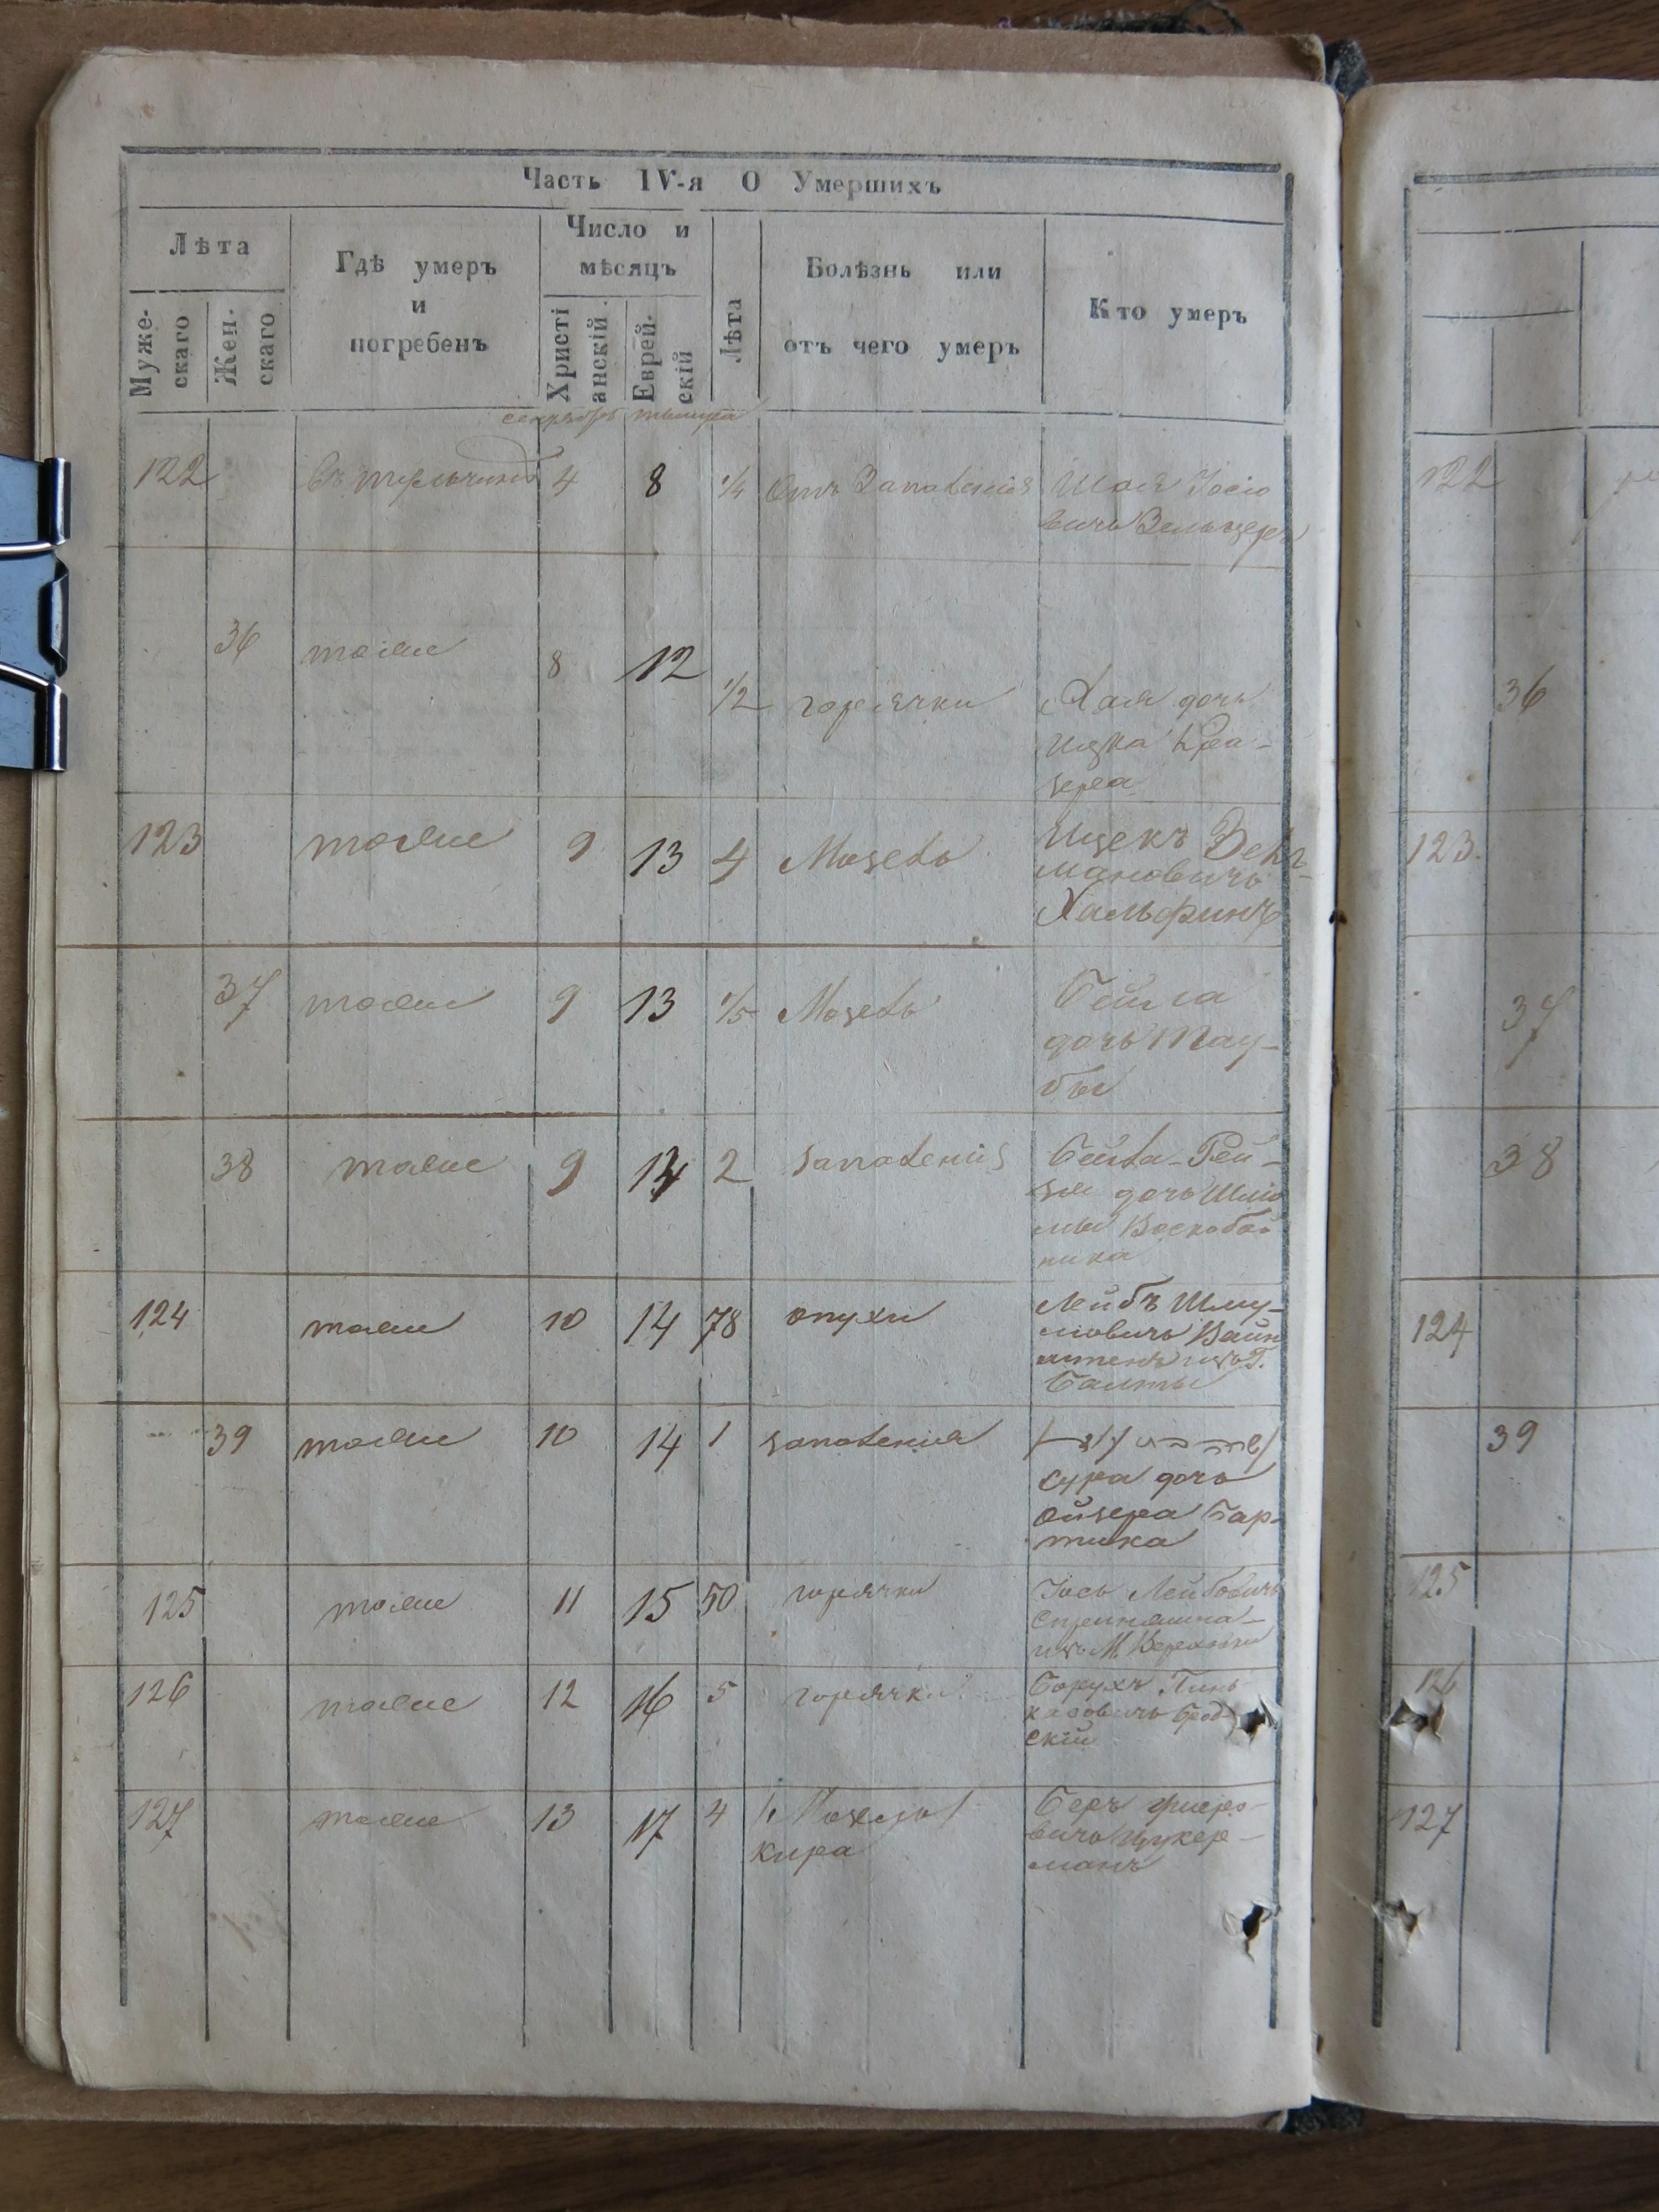 Часть IV-я О Умершихъ
Лѣта
Муже-
скаго
Жен-
скаго
Гдѣ умеръ
и
погребенъ
Число и
мѣсяцъ
Христі
анскій
Еврей-
скій
Лѣта
Болѣзнь или
отъ чего умеръ
Кто умеръ
122 4 8 1/4 Отъ Запаленія Шая Іосіо
вичъ Зельцеръ
36 тоже 8 12 1/2 горячки Хая дочь
Ицка Кра-
зера
123 тоже 9 13 4 Мозево Ицекъ
мановичъ
Хальфинъ
37 тоже 9 13 1/5 Мозево Бейла
дочь Тау-
бы
38 тоже 9 14 2 запаленіе Бейла-Рей-
зя дочь Шлио
мы Воскобой
ника
124 тоже 10 14 78 опухи Лейбъ Шму-
лювичъ Вайн
штенъ изъ Г.
Балты
39 тоже 10 14 1 запаленія
сура дочь
Ойзера Бар-
тика
125 тоже 11 15 50 горячки Іось Лейбовичъ
изъ М.
126 тоже 12 16 5 горячки Борухъ Пинь-
касовичъ Брод-
скій
127 тоже 13 17 4 Беръ
вичъ Цукер-
кира манъ
122
36
123.
37
38
124
39
125
126
127